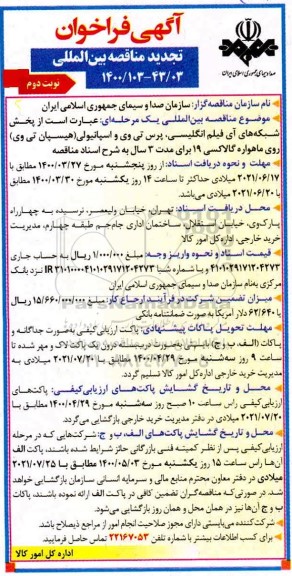 آگهی فراخوان
تجدید مناقصه بین‌المللی
۱۴۰۰/۱۰۳-۴۳/۰۳
نوبت دوم
صدا و سیمای جمهوری اسلامی ایران
نام سازمان مناقصه‌گزار: سازمان صدا و سیمای جمهوری اسلامی ایران
موضوع مناقصه بین‌المللی یک مرحله‌ای: عبارت است از پخش
شبکه‌های آی فیلم انگلیسی، پرس تی وی و اسپانیولی(هیسپان تی وی)
روی ماهواره گالاکسی ۱۹ برای مدت ۳ سال به شرح اسناد مناقصه
مهلت و نحوه دریافت اسناد: از روز پنجشنبه مورخ ۱۴۰۰/۰۳/۲۷ مطابق با
۲۰۲۱/۰۶/۱۷ میلادی حداکثر تا ساعت ۱۴ روز یکشنبه مورخ ۱۴۰۰/۰۳/۳۰
مطابق با ۲۰۲۱/۰۶/۲۰ میلادی می‌باشد.
محل دریافت اسناد: تهران، خیابان ولیعصر، نرسیده به چهارراه
پارک‌وی، خیابان استقلال، ساختمان اداری جام‌جم طبقه چهارم، مدیریت
خرید خارجی، اداره کل امور کالا
قیمت اسناد و نحوه واریز وجه: مبلغ ۱/۰۰۰/۰۰۰ ریال به حساب جاری
۴۱۰۱۰۲۹۱۷۱۲۰۴۲۷۳ و با شماره شبا IR ۲۱۰۱۰۰۰۰۴۱۰۱۰۲۹۱۷۱۲۰۴۲۷۳ نزد بانک
مرکزی به‌نام سازمان صدا و سیمای جمهوری اسلامی ایران
میزان تضمین شرکت در فرآیند ارجاع کار: مبلغ ۱۵/۶۶۰/۰۰۰/۰۰۰ ریال یا
۶۲/۶۴۰ دلار آمریکا به صورت ضمانتنامه بانکی
مهلت تحویل پاکات پیشنهادی: پاکت ارزیابی‌کیفی به‌صورت جداگانه و
پاکات (الف، ب و ج) بایستی به‌صورت دربسته درون یک پاکت لاک و مهر شده تا
ساعت ۹ روز سه‌شنبه مورخ ۱۴۰۰/۰۴/۲۹ مطابق با ۲۰۲۱/۰۷/۲۰ میلادی به
مدیریت خرید خارجی اداره کل امور کالا تسلیم گردد.
محل و تاریخ گشایش پاکت‌های ارزیابی‌کیفی: پاکت‌های
ارزیابی‌کیفی راس ساعت ۱۰ صبح روز سه‌شنبه مورخ ۱۴۰۰/۰۴/۲۹ مطابق با
۲۰۲۱/۰۷/۲۰ میلادی در دفتر مدیریت خرید خارجی بازگشایی می‌گردد.
محل و تاریخ گشایش پاکت‌های الف، ب و ج: شرکت‌هایی که در مرحله
ارزیابی‌کیفی پس از نظر کمیته فنی بازرگانی حائز شرایط شده باشند، پاکت الف
آن‌ها راس ساعت ۱۵ روز یکشنبه مورخ ۱۴۰۰/۰۵/۰۳ مطابق با ۲۰۲۱/۰۷/۲۵
میلادی در دفتر معاون محترم منابع مالی و سرمایه انسانی سازمان بازگشایی خواهد
شد. در صورتی‌که مناقصه‌گران تضمین کافی در پاکت الف ارائه نموده باشند، پاکات
ب و ج آن‌ها نیز در همان محل و همان روز بازگشایی می‌شود.
شرکت‌کننده می‌بایستی دارای مجوز صلاحیت انجام امور از مراجع ذیصلاح باشد.
برای کسب اطلاعات بیشتر با شماره تلفن ۲۲۱۶۷۰۵۳ تماس حاصل فرمایید.
اداره کل امور کالا